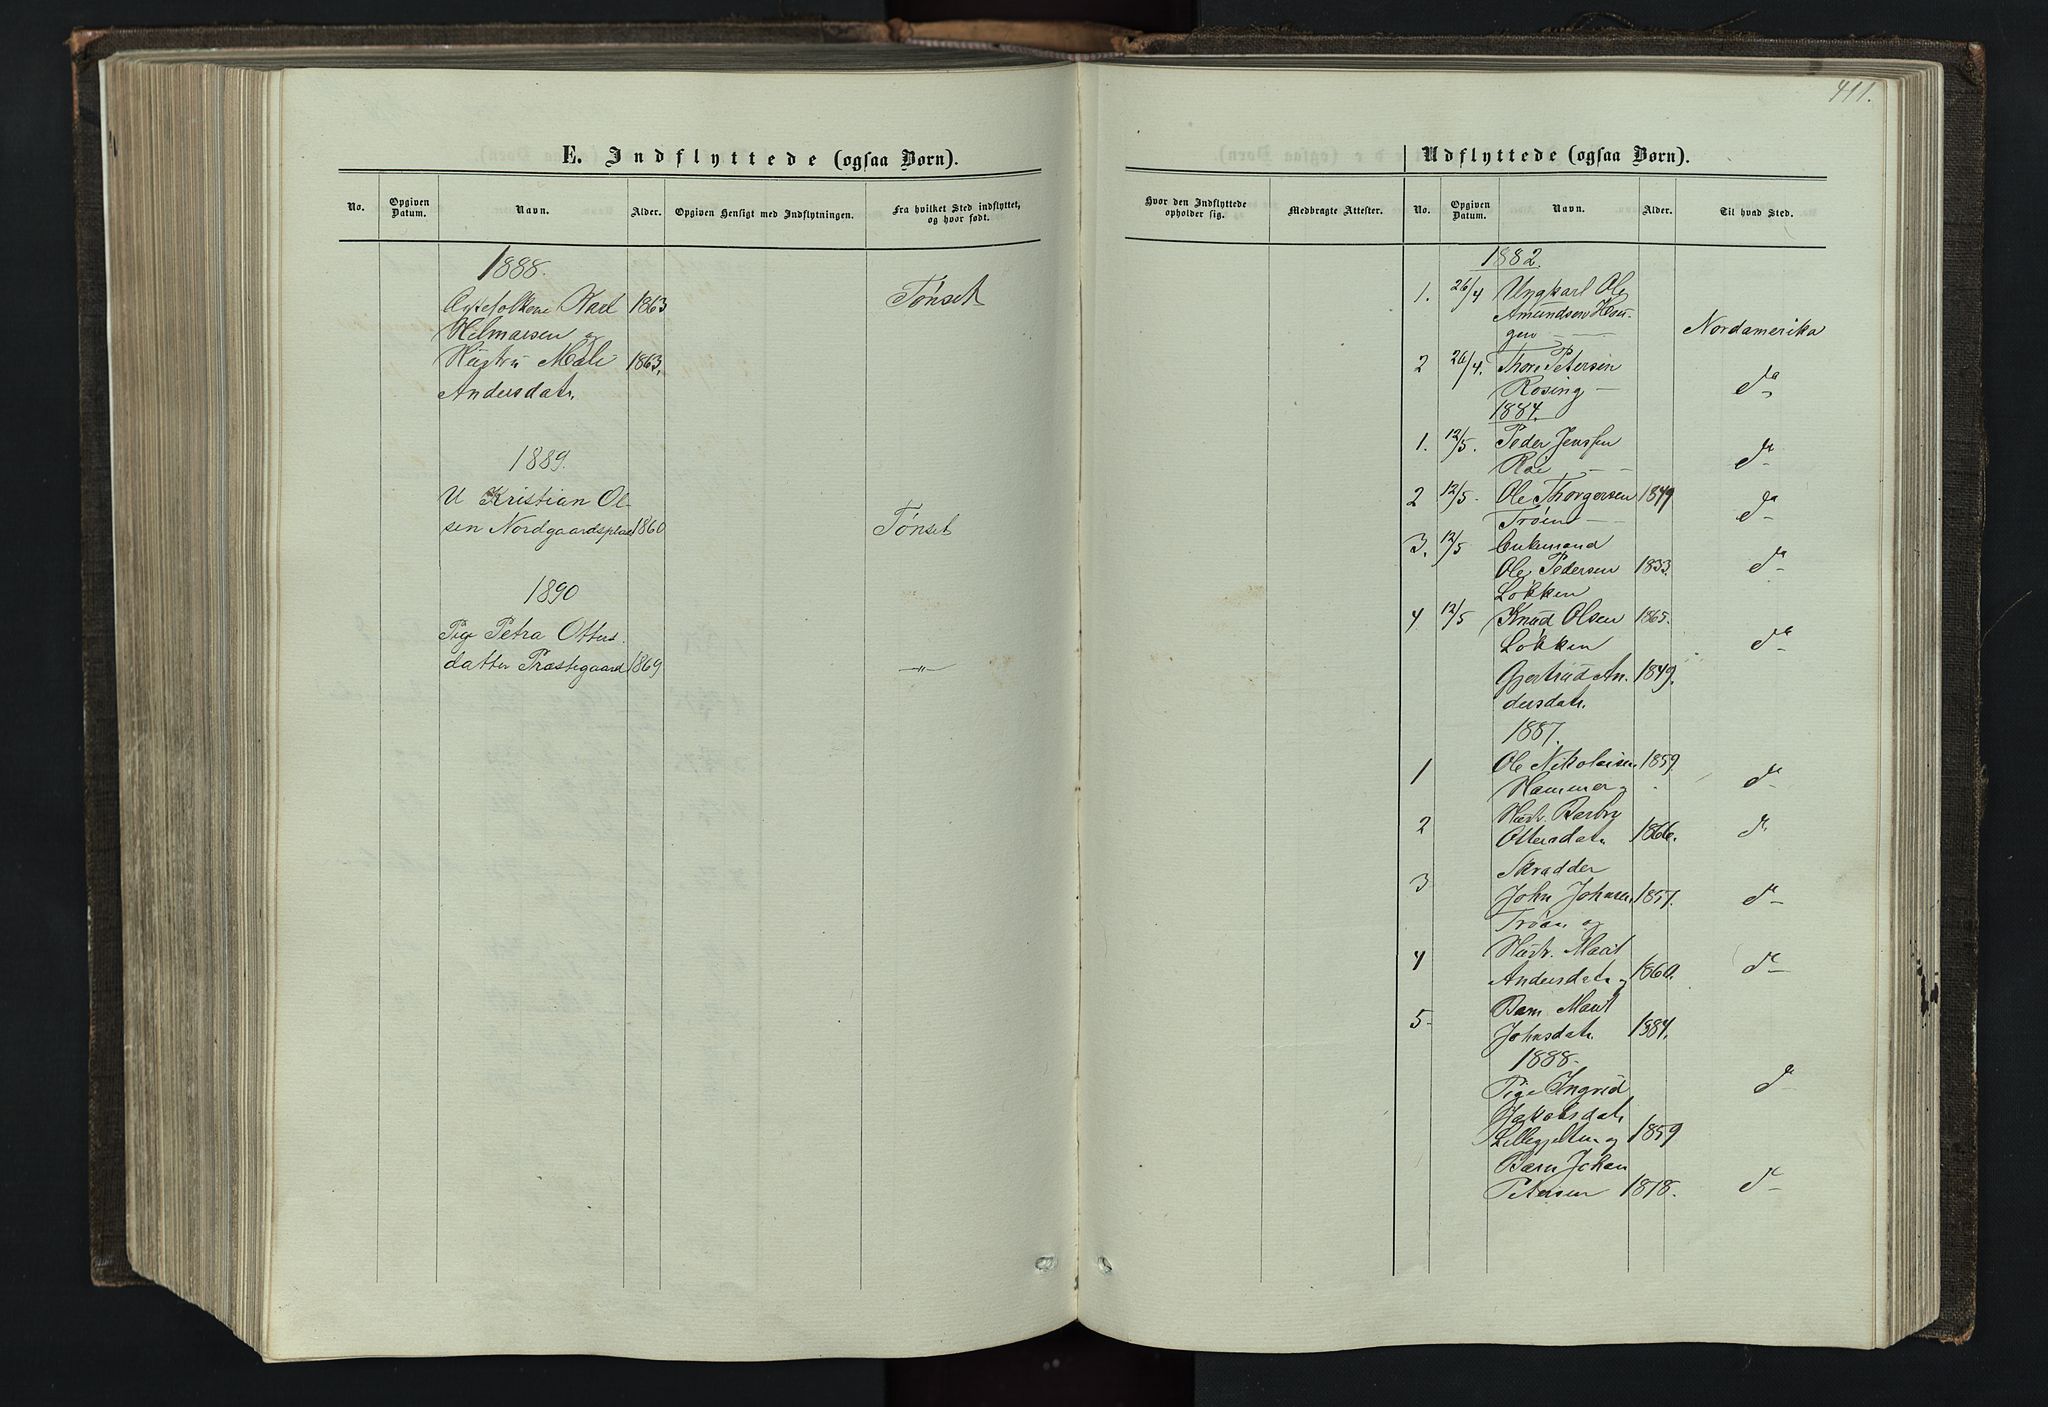 411.
E. Indflyttede (ogsaa Børn).
No. Opgiven Datum. Navn. Alder. Opgiven Hensigt med Indflytningen. Fra hvilket Sted indflyttet, og hvor født.
1888.
Karl 1863 Tønset
Helmersen og
Hustru Mali 1863.
Andersdatr.
1889.
U Kristian Ol-
sen Nordgaardsplads 1860 Tønset
1890
Pige Petra Otters-
datter Præstegaard 1869 —"—
Hvor den Indflyttede opholder sig. Medbragte Attester.
Udflyttede (ogsaa Børn).
No. Opgiven Datum. Navn. Alder. Til hvad Sted.
1882.
1. 26/4 Ungkarl Ole
Amundsen Hau-
gen — Nordamerika
2 26/4. Thore Petersen
Rosing — do
1884.
1. 12/5. Peder Jenssen
Røe — — do
2 12/5. Ole Thorgersen 1849
Trøen — do
3. 12/5 Enkemand
Ole Pedersen 1833. do
Løkken
4 12/5 Knud Olsen 1865.
Løkken do
Gjertrud An- 1849.
dersdatr.
1887.
1 Ole Nikolaisen 1859.
Hammer og do
2 Hustr. Barbro
Ottersdatr. 1866. do
3 Skrædder
John Johnsen 1857. do
Trøen og
4 Hustr. Marit
Andersdatr og 1860. do
5- Barn Marit
Johnsdatr. 1884.
1888.
Pige Ingrid do
Jakobsdatr.
og 1859
Barn Johan
Petersen 1878. do